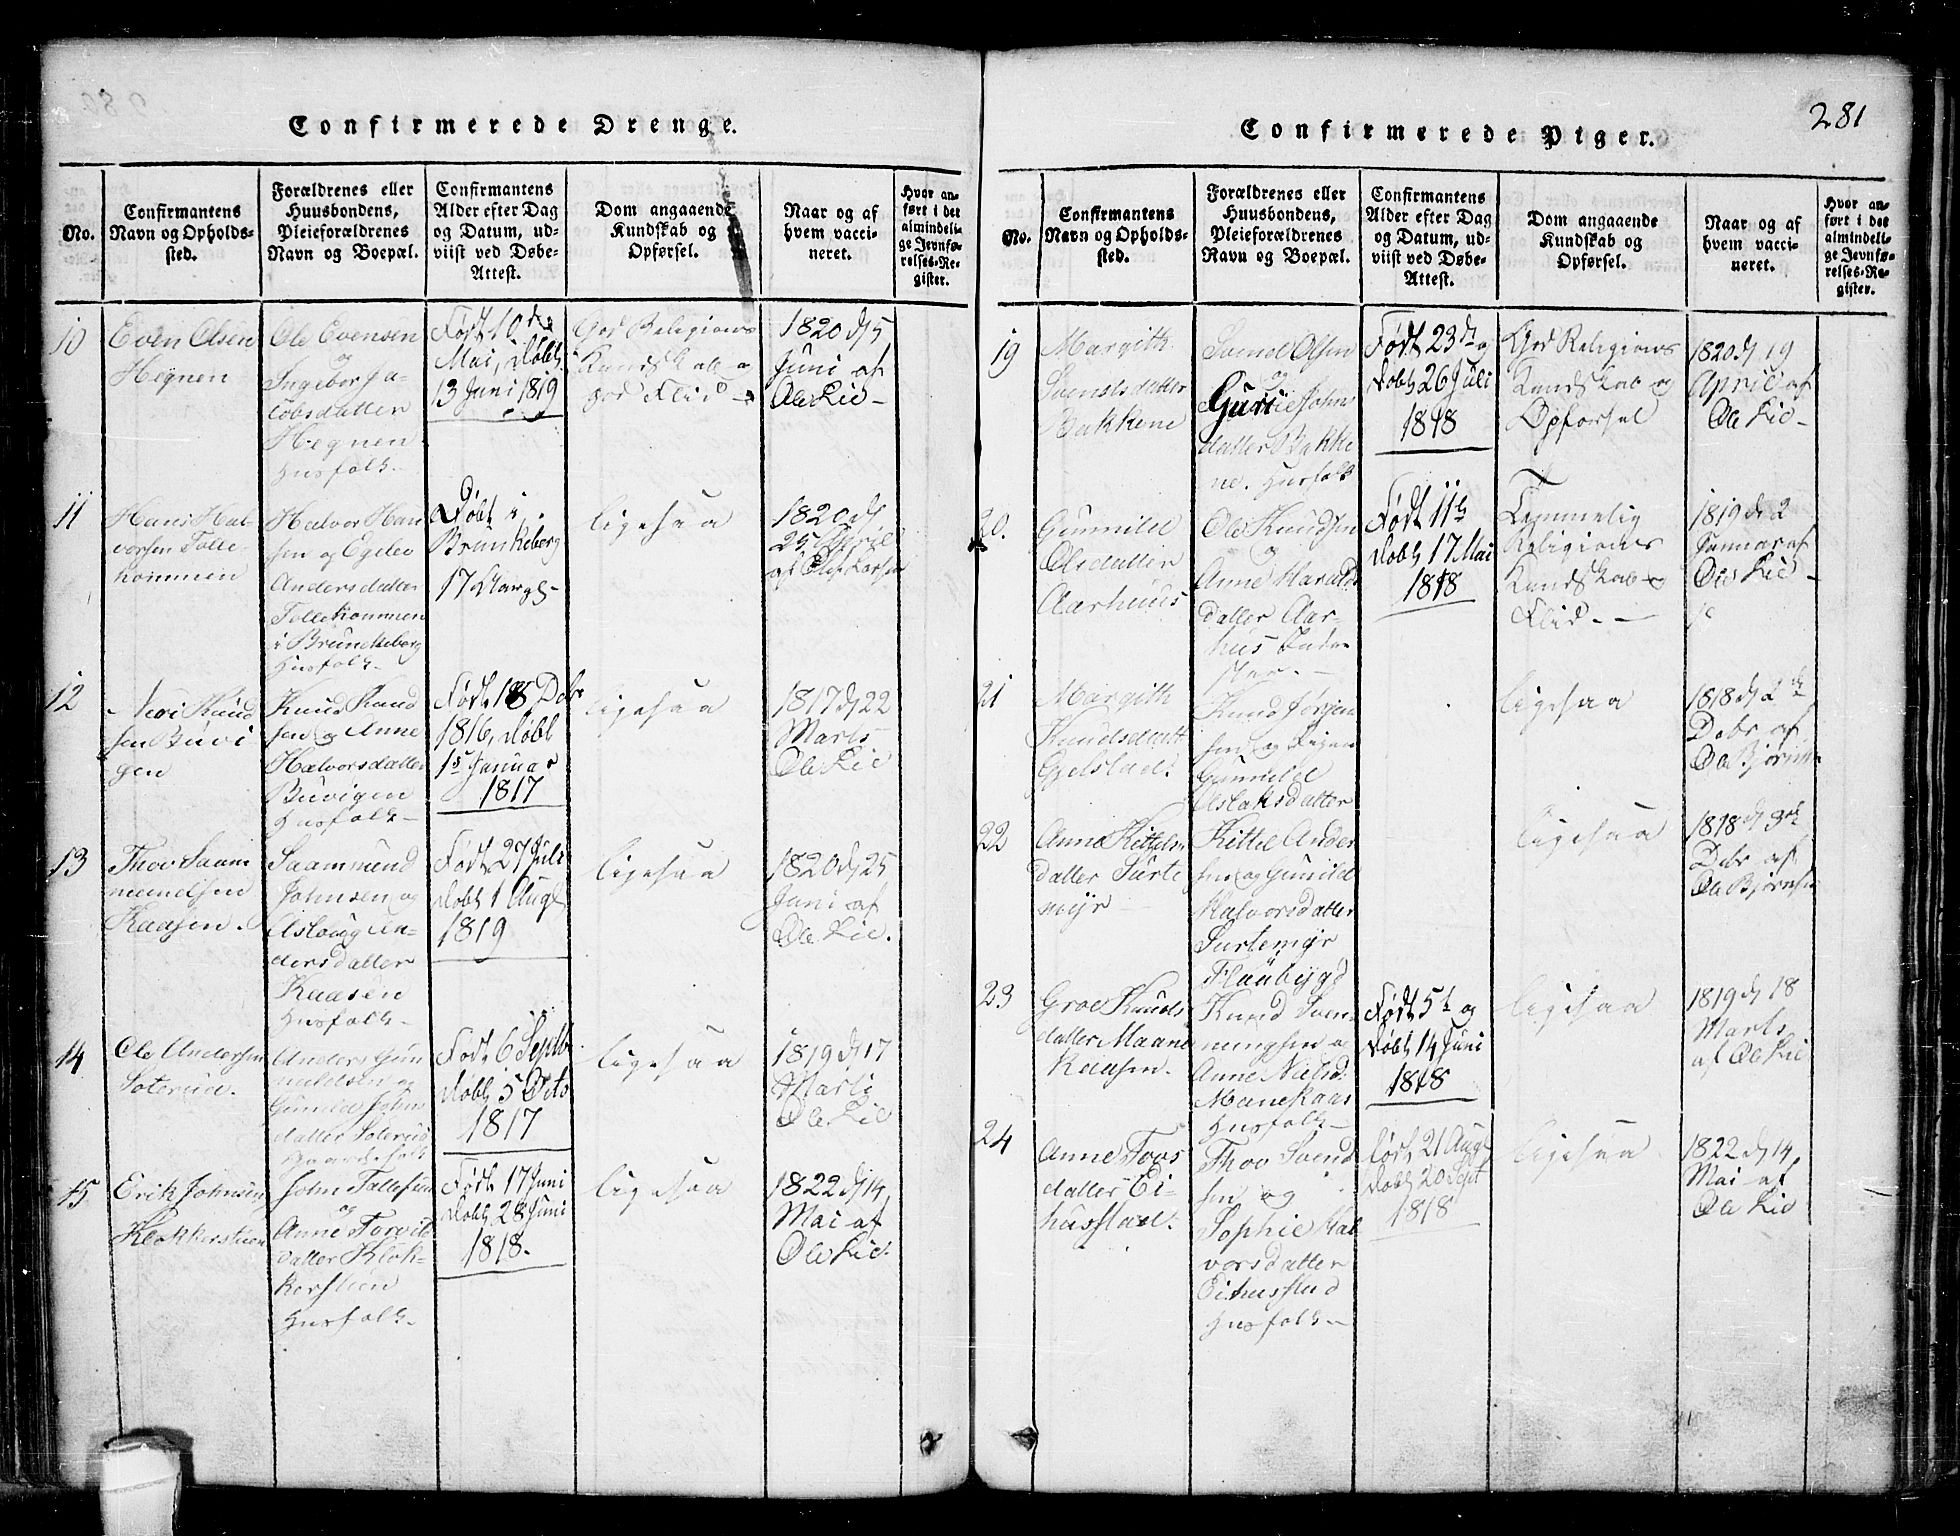 Confirmerede Drenge.
No.
Confirmantens
Navn og Opholds-
sted.
Forældrenes eller
Huusbondens,
Pleieforældrenes
Navn og Boepæl.
Confirmantens
Alder efter Dag
og Datum, ud-
viist ved Døbe-
Attest.
Dom angaaende
Kundskab og
Opførsel.
Naar og af
hvem vacci-
neret.
Hvor an-
ført i det
almindeli-
ge Jevnfø-
relses-Re-
gister.
10
Even Olsen
Hegnen
Ole Evensen
og
Ingebor Ja-
cobsdatter
Hegnen
Husfolk.
Født 10de
Mai, døbt
13 Juni 1819
God Religions
Kundskab og
god Flid
1820 d. 5
Juni af
Ole Lie
11
Hans Hal-
vorsen Tolle-
kommen
Halvor Han
sen og
Andersdatter
Tollekommen
i Brunkeberg
Husfolk
Døbt i
Brunkeberg
17
ligesaa
1820 d.
25 April
af Ole Larsen
12
Knud
sen Buvi
gen
Knud Knud
sen og Anne
Halvorsdatter
Buvigen
Husfolk
Født 18 Debr
1816, døbt
1s Januar
1817
ligesaa
1817 d. 22
Marts
Ole Lie
13
Thov Saam
mundsen
Kaasen.
Saamund
Johnsen og
Aslaug An-
dersdatter
Kaasen
Husfolk
Født 27 Juli
døbt 1 Augt
1819
ligesaa
1820 d. 25
Juni af
Ole Lie.
14
Ole Andersen
Soterud.
Anders Gun
nuldsen og
Gunild John
datter Soterud
Født 6 Septb
døbt 5 Octo
1817
ligesaa
1819 d. 17
Marts
Ole Lie
15
Erik Johnsen
Klokkerstuen
John Tallefsen
og
Anne Torvil
datter Klok-
kerstuen
Husfolk.
Født 17 Juni
døbt 28 Juni
1818.
ligesaa
1822 d. 14
Mai af
Ole Lie.
281
Confirmerede Piger.
No.
Confirmantens
Navn og Opholds-
sted.
Forældrenes eller
Huusbondens,
Pleieforældrenes
Navn og Boepæl.
Confirmantens
Alder efter Dag
og Datum, ud-
viist ved Døbe-
Attest.
Dom angaaende
Kundskab og
Opførsel.
Naar og af
hvem vacci-
neret.
Hvor an-
ført i det
almindeli-
ge Jevnfø-
relses-Re-
gister.
19
Margith
Svendsdatter
Bakkene
Svend Olsen
og
John
datter Bakke
ne. Husfolk
Født 23d og
døbt 26 Juli
1818
God Religions
Kundskab og
Opførsel
1820 d. 19
April af
Ole Lie
20.
Gunnild
Olsdatter
Aarhuus
Ole Knudsen
og
Anne Harald
datter Aar-
hus
Født 11te
døbt 17 Mai
1818
Temmelig
Religions
Kundskab og
Flid.
1819 d. 2
Januar af
Ole Lie
21
Margith
Knudsdatt
Gjelstad.
Knud Jørgen
sen og
Gunnild
Aslaksdatter
ligesaa
1818 d. 2de
Debr af
Ole Bjørnsen
22
Anne Kittels
datter Surte
myr
Kittel Ander
sen og Gunild
Halvorsdatter
Surtemyr
Flaabygd
ligesaa
1818 d. 3de
Debr af
Ole Bjørnsen
23
Groe Knuds
datter Maane
Kaasen.
Knud Sven-
nungsen og
Anne Nielsd.
Manekaas
Husfolk
Født 5te og
døbt 14 Juni
1818
ligesaa
1819 d. 18
Marts
af Ole Lie
24
Anne Tovs
datter Ei-
husstad.
Thov Svend
sen og
Sophie Hal
vorsdatter
Eihusstad
Husfolk
født 21 Augt
døbt 20 Sept
1818
ligesaa
1822 d. 14
Mai af
Ole Lie